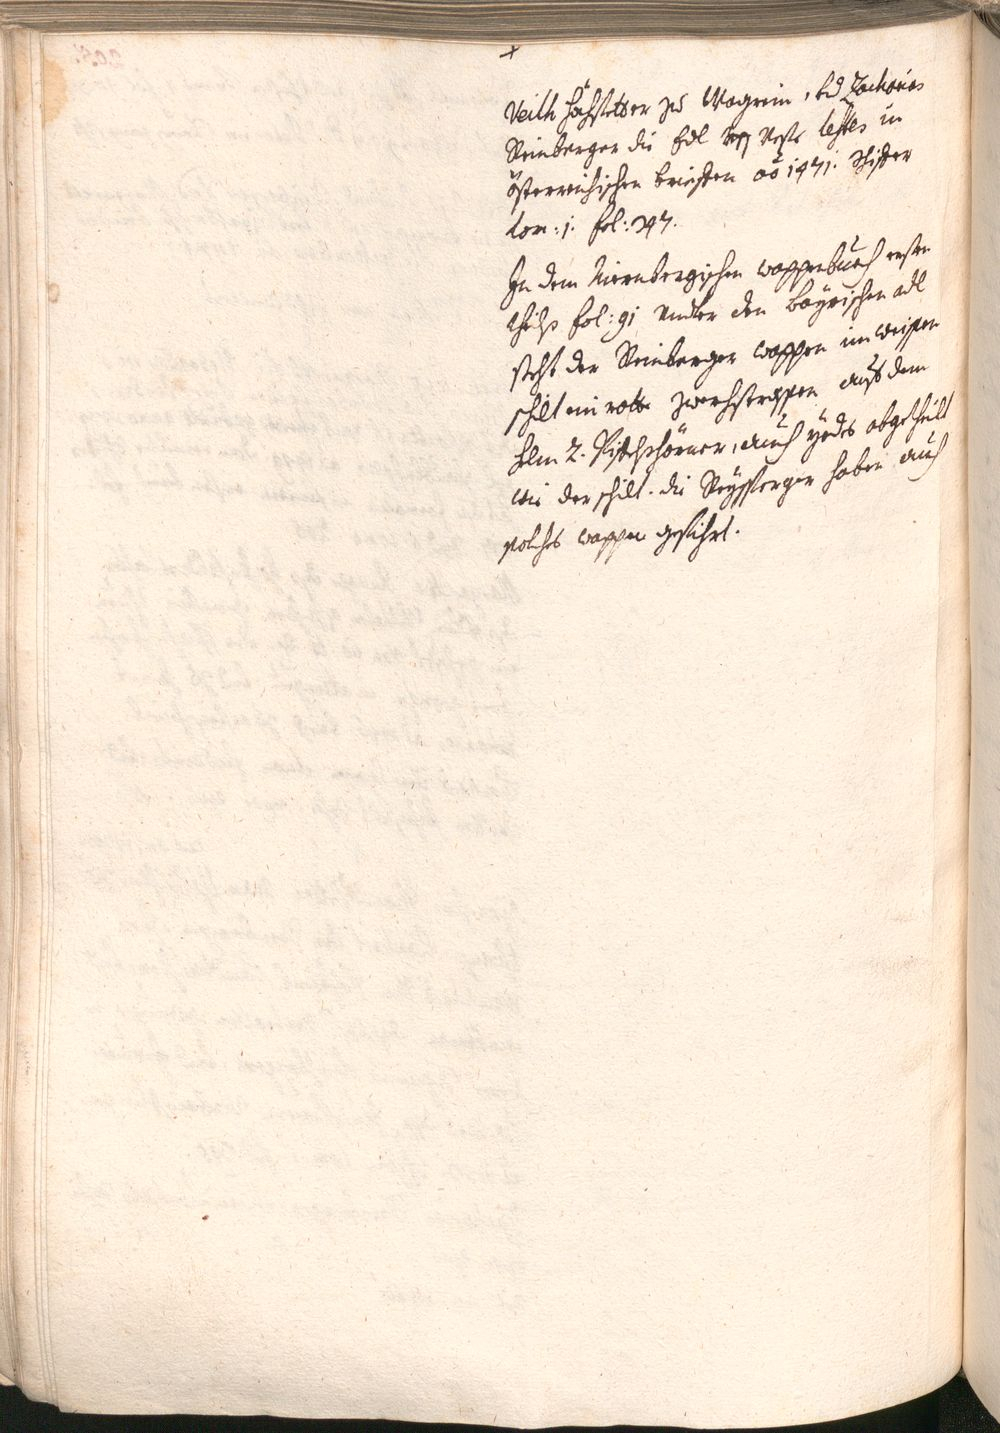 +
Veith Hächstetter zu Wagrein, vnd Zacharias
Reinberger die Edl Veste testes in
österreichischen brieffen ao 1471.
tom: 1. fol: 747.
In dem Nürnbergischen wappenbuech ersten
theihs fol: 91 Vndter den bayrischen adl
steht der Reinberger wappen im weissen
schilt ein rotte zwerhstrassen auß dem
helm 2. Pifflshörner, auch yedes abgetheilt
wie der schilt. die haben auch
solches wappen gefiehrt.